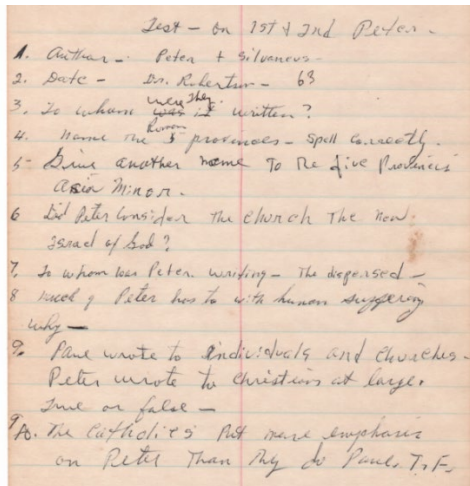 Test - on 1st & 2nd Peter.
1. Author - Peter + Silvaneus -
2. Date - Dr. Robertson - 63
were they
3. To whom was it written?
Roman
4. Name the 5 provinces - Spell correctly.
5- Give another name To The five Provinces
Asia Minor.
6 Did Peter Consider The Church The New
Israel of God?
7. To whom was Peter writing - The dispersed -
8 much of Peter has to with human suffering
why -
9. Paul wrote to individuals and churches -
Peter wrote to Christians at large.
True or false -
10. The Catholics Put more emphasis
on Peter Than They do Paul. T. F.